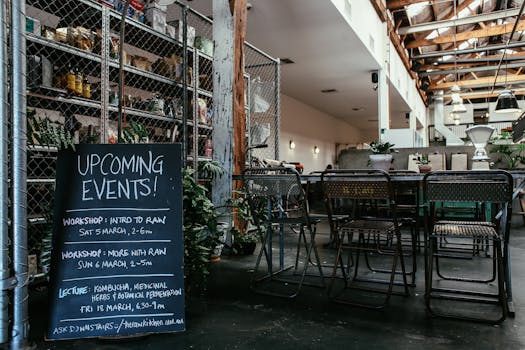 UPCOMING
EVENTS!
WORKSHOP: INTRO TO RAW
SAT 5 MARCH, 2-6PM
WORKSHOP: MORE WITH RAW
SUN 6 MARCH, 2-5PM
LECTURE: KOMBUCHA, MEDICINAL
HERBS & BOTANICAL FERMENTATION
FRI 18 MARCH, 6.30-9PM
ASK DOWNSTAIRS/